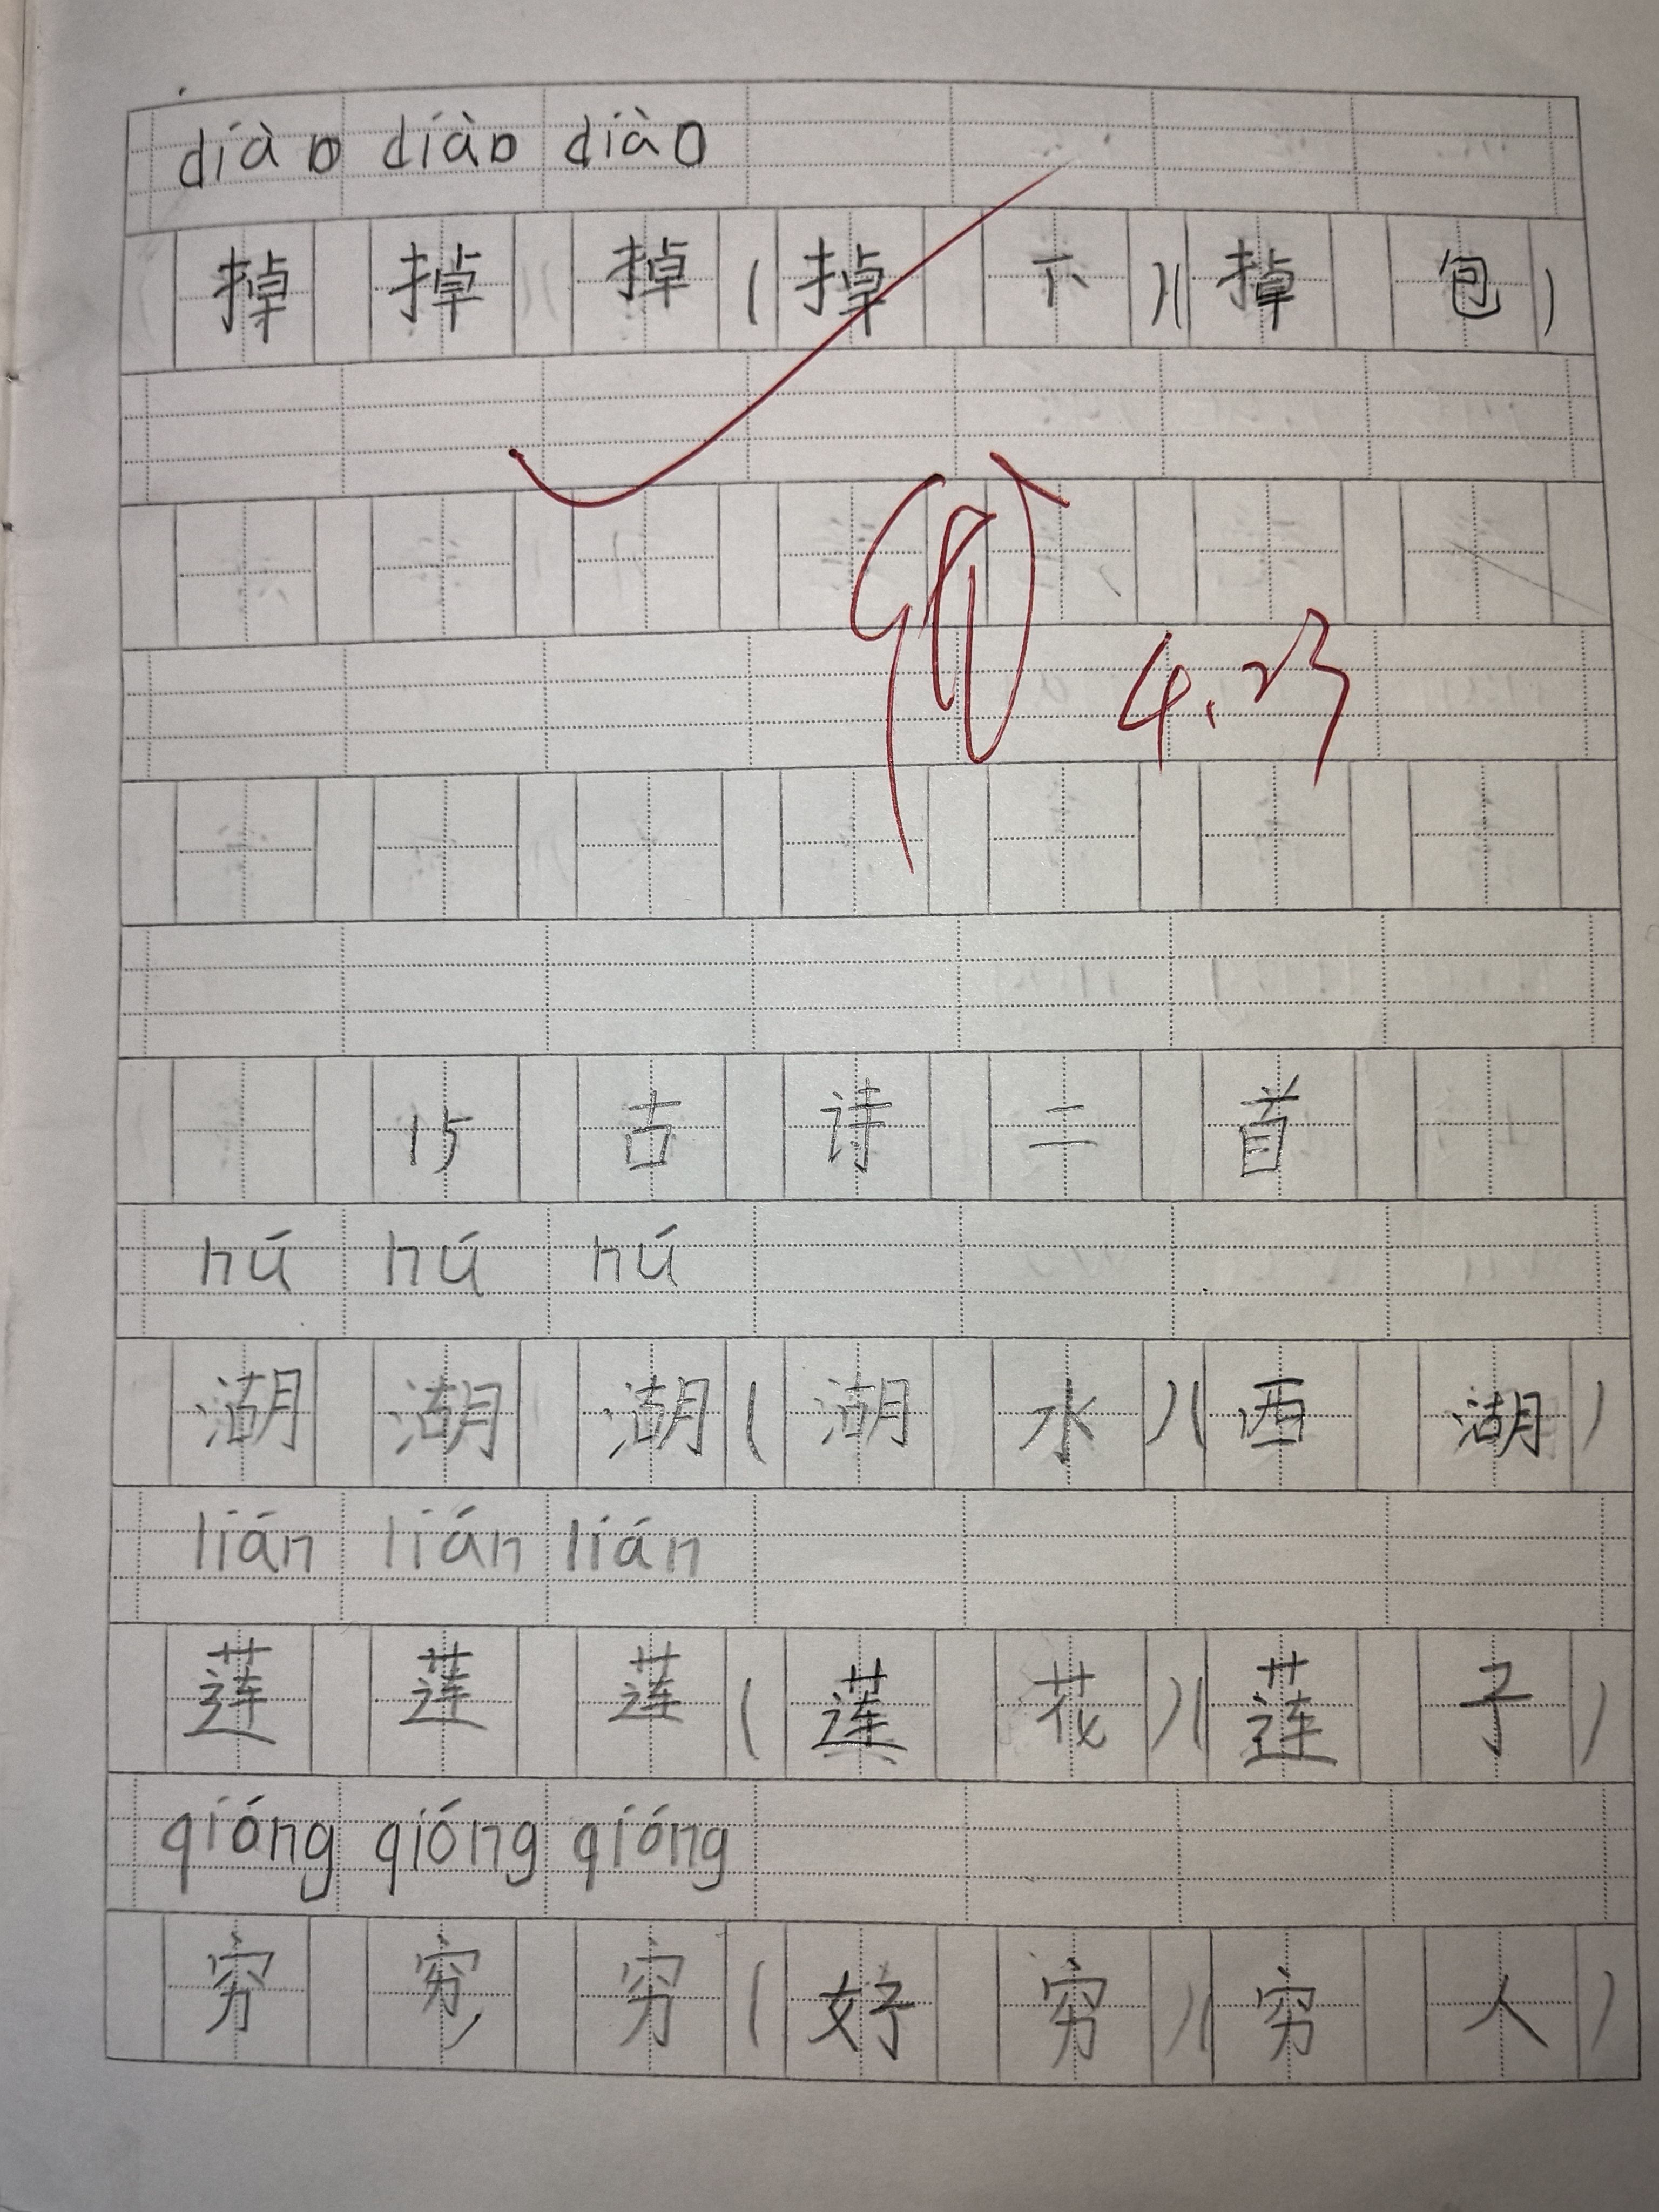 diào diào diào
掉 掉 掉 (掉 下)(掉 包)
4.23
15 古 诗 二 首
hú hú hú
湖 湖 湖 (湖 水)(西 湖)
lián lián lián
莲 莲 莲 (莲 花)(莲 子)
qióng qióng qióng
穷 穷 穷 (好 穷)(穷 人)